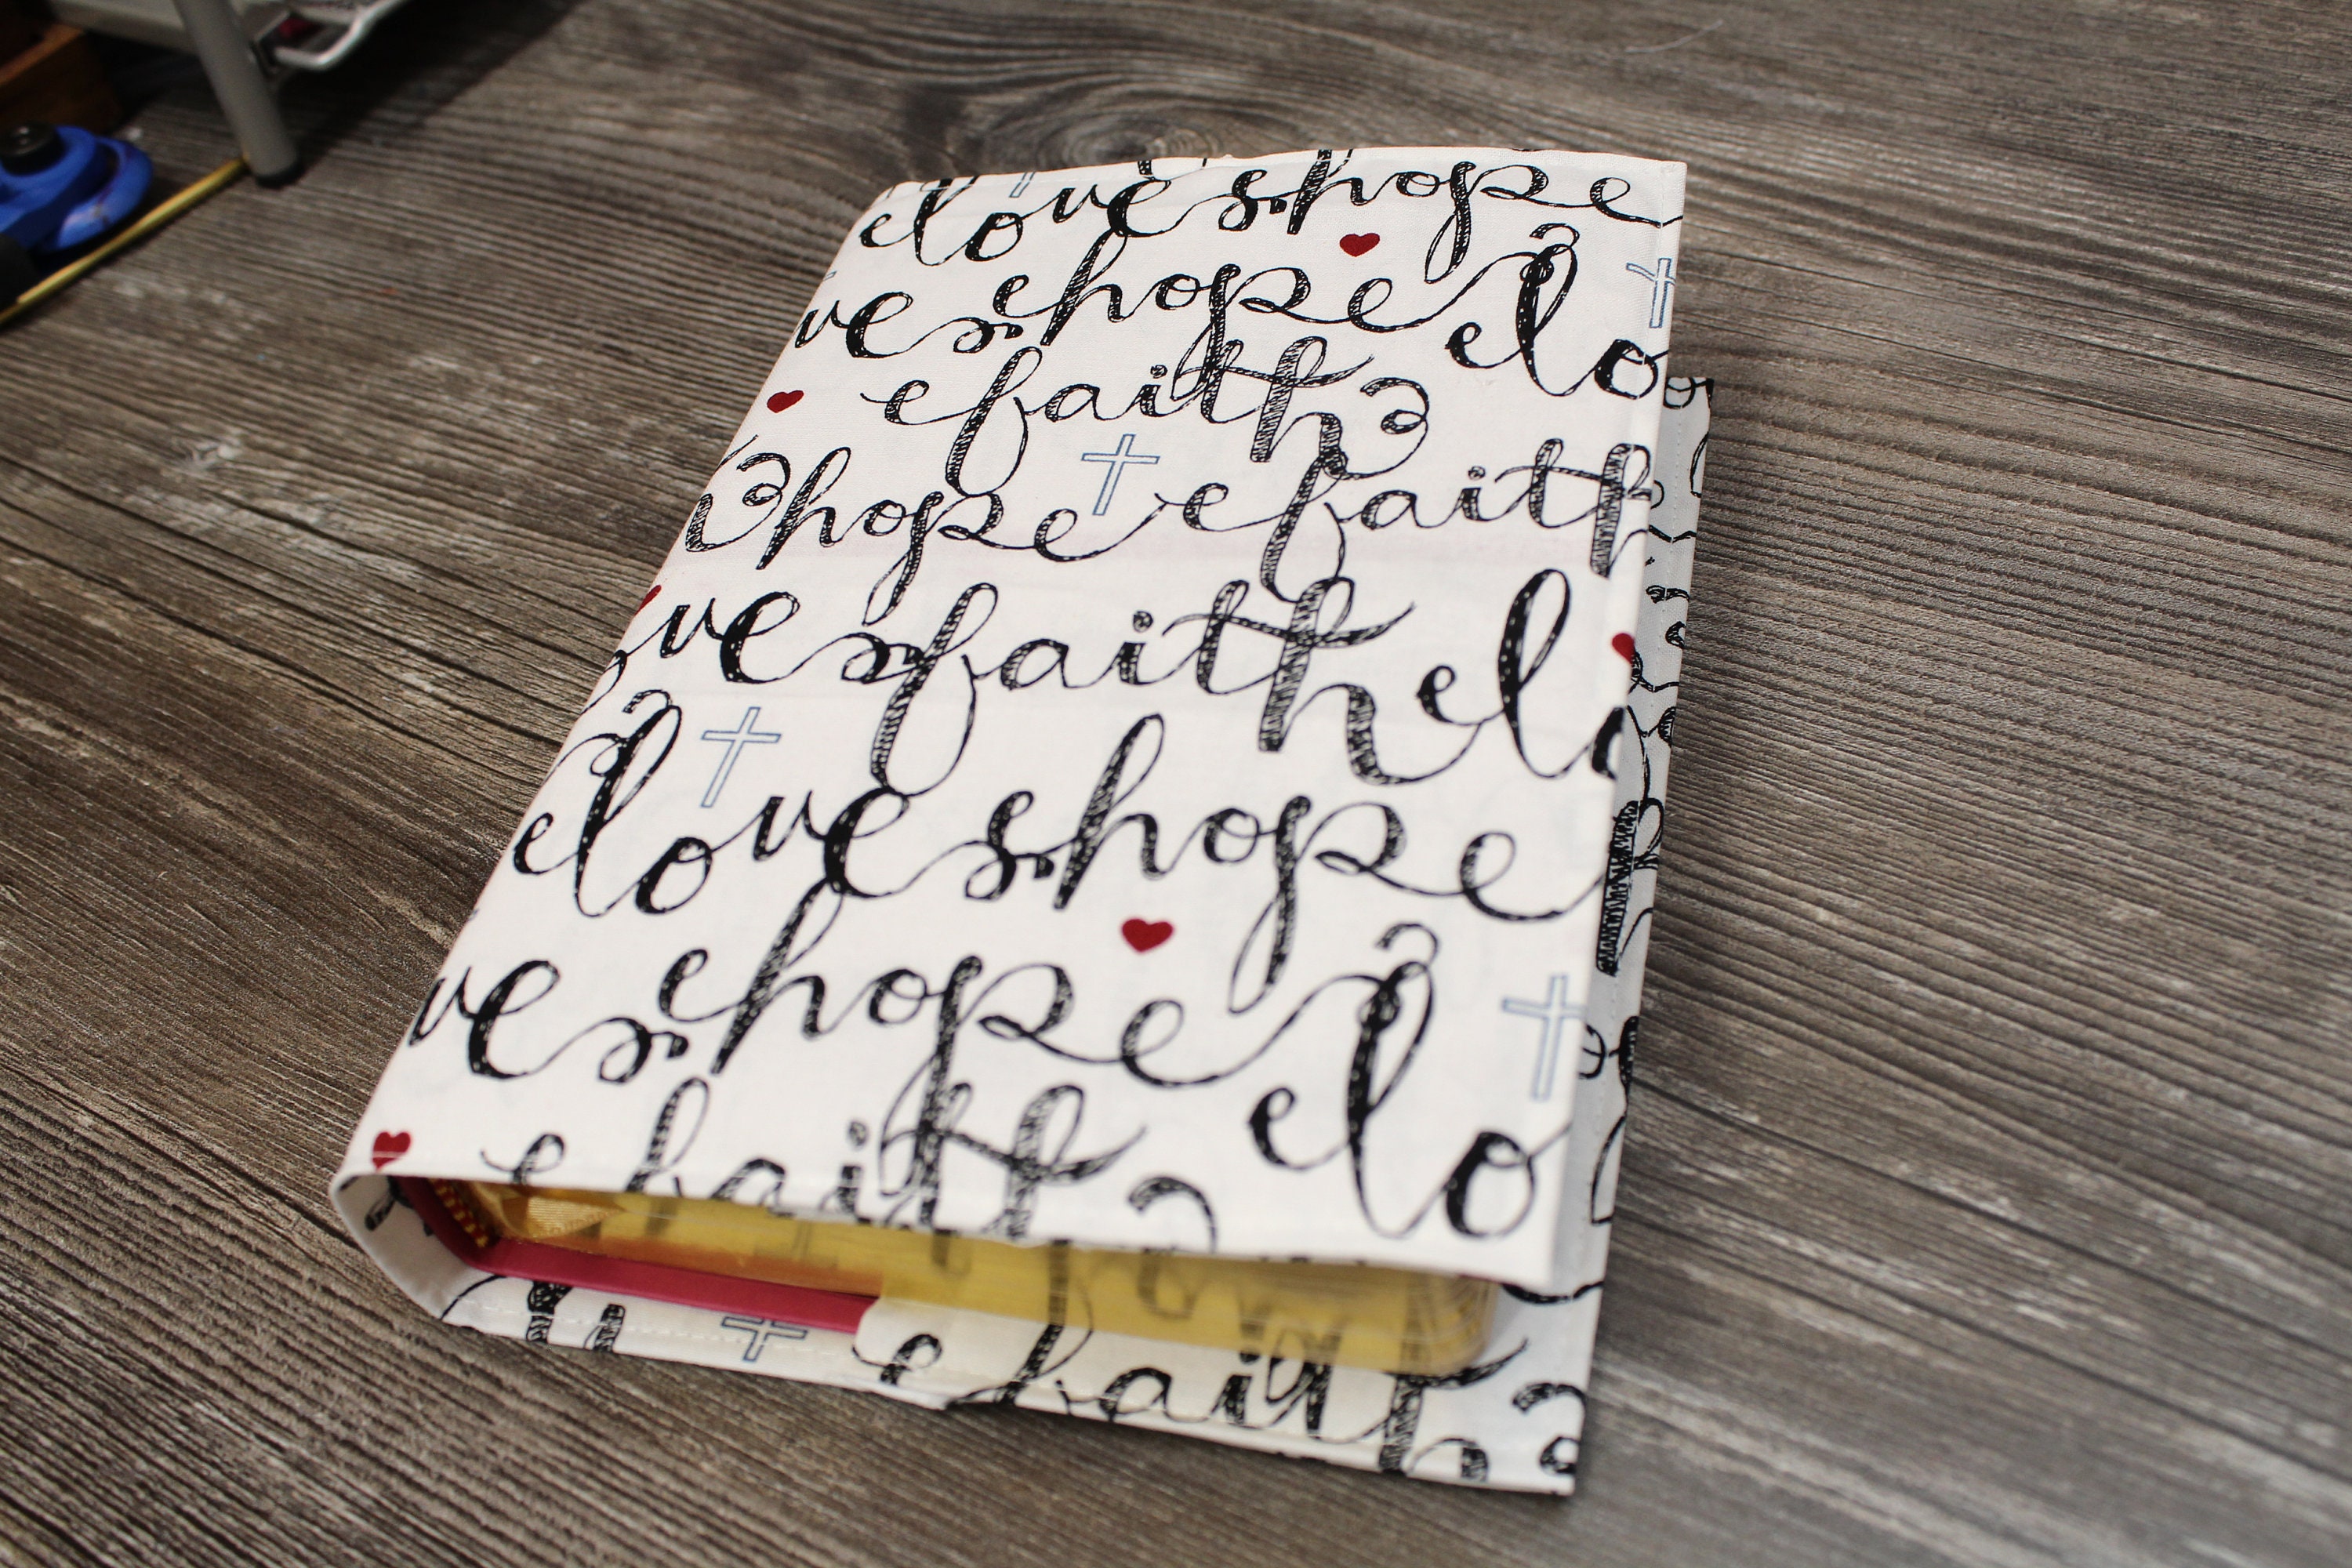 love hope
hope
faith
hope faith
faith
love hope
hope
faith
faith